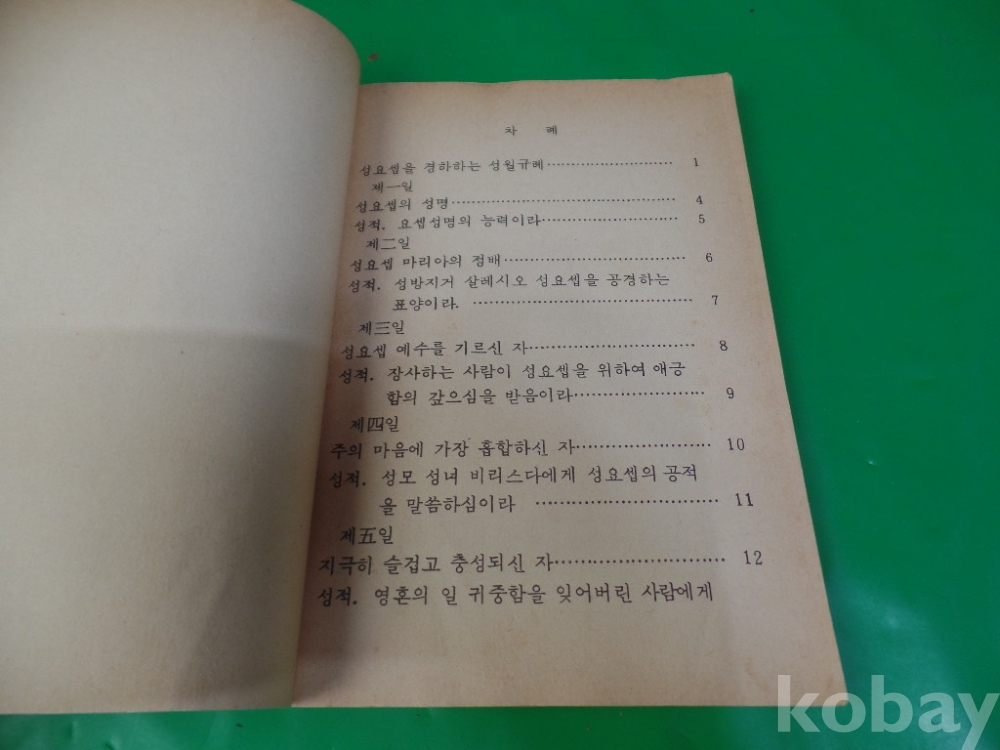 차 례
성요셉을 경하하는 성월규례 ························ 1
제一일
성요셉의 성명 ············································ 4
성적. 요셉성명의 능력이라 ·························· 5
제二일
성요셉 마리아의 정배 ·································· 6
성적. 성방지거 살레시오 성요셉을 공경하는
표양이라. ········································ 7
제三일
성요셉 예수를 기르신 자 ······························ 8
성적. 장사하는 사람이 성요셉을 위하여 애긍
함의 갚으심을 받음이라 ······················ 9
제四일
주의 마음에 가장 흡합하신 자 ······················ 10
성적. 성모 성녀 비리스다에게 성요셉의 공적
을 말씀하심이라 ······························ 11
제五일
지극히 슬겁고 충성되신 자 ·························· 12
성적. 영혼의 일 귀중함을 잊어버린 사람에게
kobay